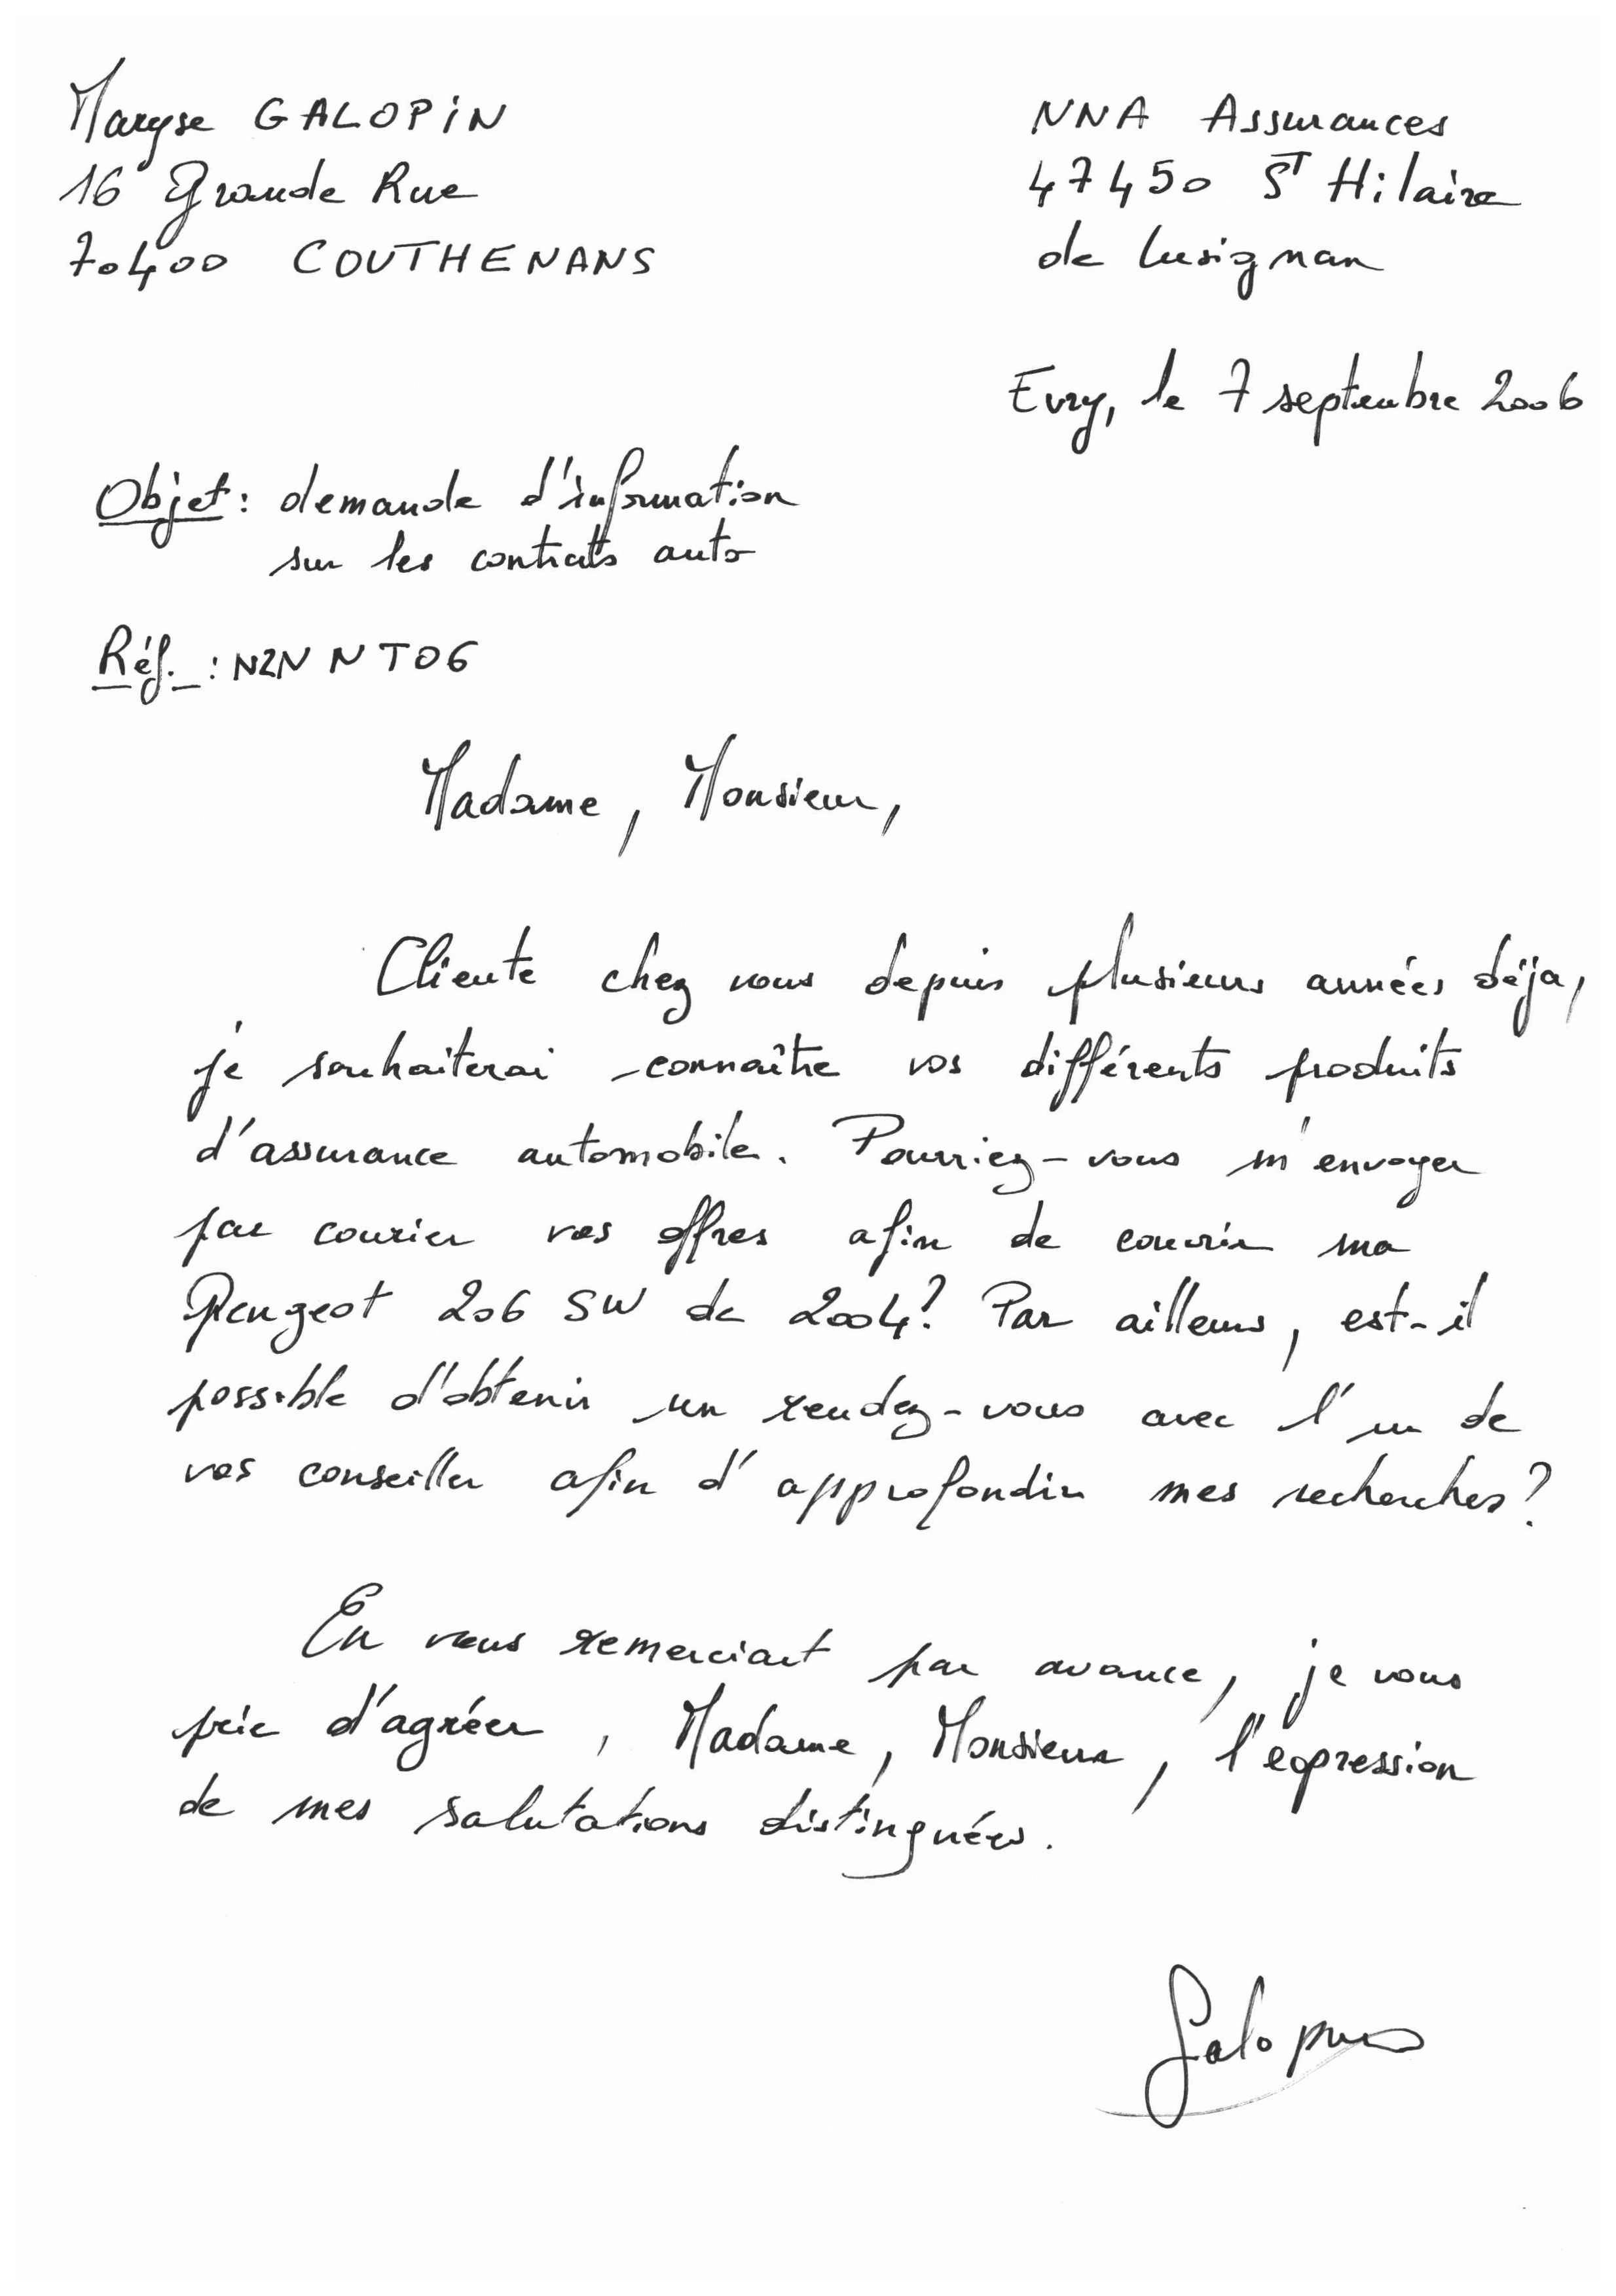 Maryse GALOPIN
16 Grande Rue
70400 COUTHENANS
NNA Assurances
47450 ST Hilaire
de Lusignan
Evry, le 7 septembre 2006
Objet : demande d'information
sur les contrats auto
Réf. : NZNNT06
Madame, Monsieur,
Cliente chez vous depuis plusieurs années déja,
je souhaiterai connaître vos différents produits
d'assurance automobile. Pourriez-vous m'envoyer
par courier vos offres afin de couvrir ma
Peugeot 206 SW de 2004? Par ailleurs, est-il
possible d'obtenir un rendez-vous avec l'un de
vos conseiller afin d'approfondir mes recherches?
En vous remerciant par avance, je vous
prie d'agréer, Madame, Monsieur, l'expression
de mes salutations distinguées.
Galopin